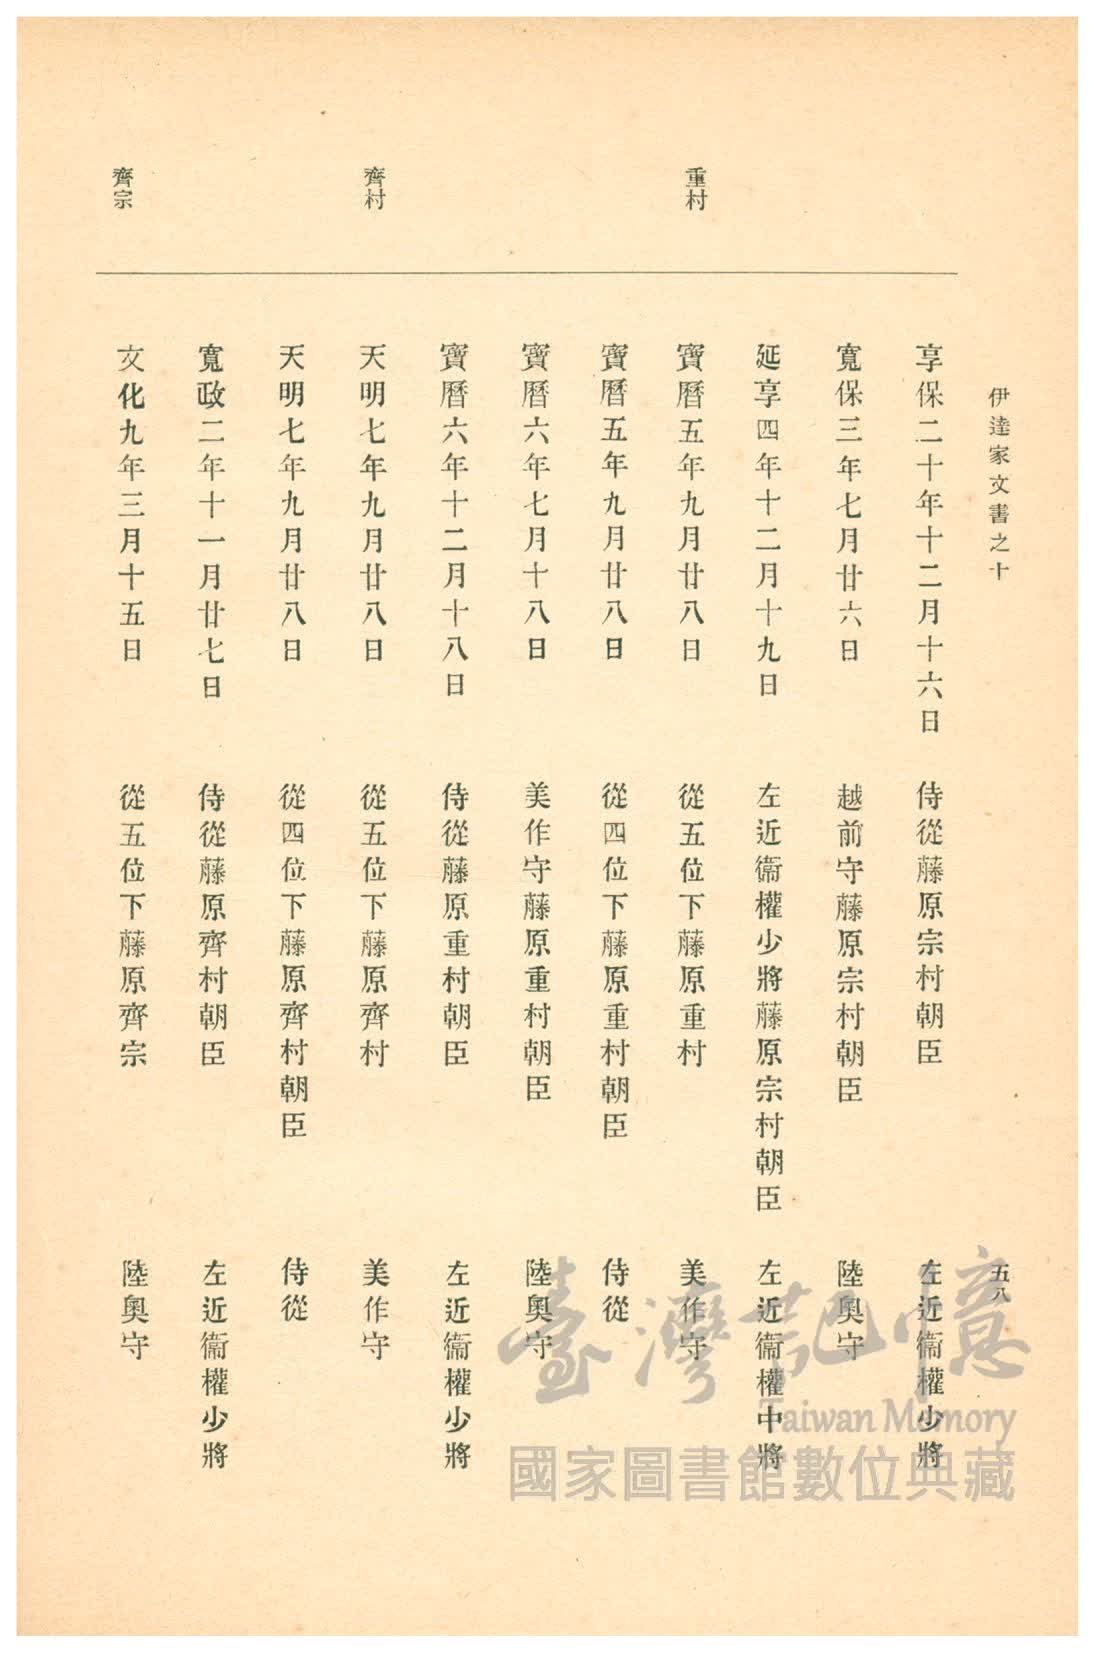 伊達家文書之十
五八
享保二十年十二月十六日　侍從藤原宗村朝臣　左近衞權少將
寬保三年七月廿六日　越前守藤原宗村朝臣　陸奧守
延享四年十二月十九日　左近衞權少將藤原宗村朝臣　左近衞權中將
重村
寶曆五年九月廿八日　從五位下藤原重村　美作守
寶曆五年九月廿八日　從四位下藤原重村朝臣　侍從
寶曆六年七月十八日　美作守藤原重村朝臣　陸奧守
寶曆六年十二月十八日　侍從藤原重村朝臣　左近衞權少將
齊村
天明七年九月廿八日　從五位下藤原齊村　美作守
天明七年九月廿八日　從四位下藤原齊村朝臣　侍從
寬政二年十一月廿七日　侍從藤原齊村朝臣　左近衞權少將
齊宗
文化九年三月十五日　從五位下藤原齊宗　陸奧守
臺灣記憶
Taiwan Memory
國家圖書館數位典藏